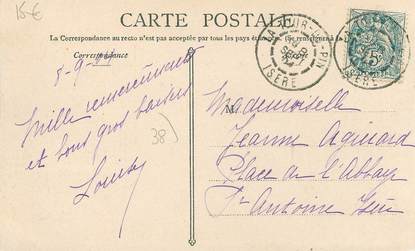 15€
CARTE POSTALE
La Correspondance au recto n'est pas acceptée par tous les pays étrangers
Correspondance
5-9-
Mille remerciements
et bons gros baisers
38)
LA TOUR-DU-PIN
ISÈRE
5
M
Mademoiselle
Jeanne
Place de l'Abbaye
St Antoine Isère